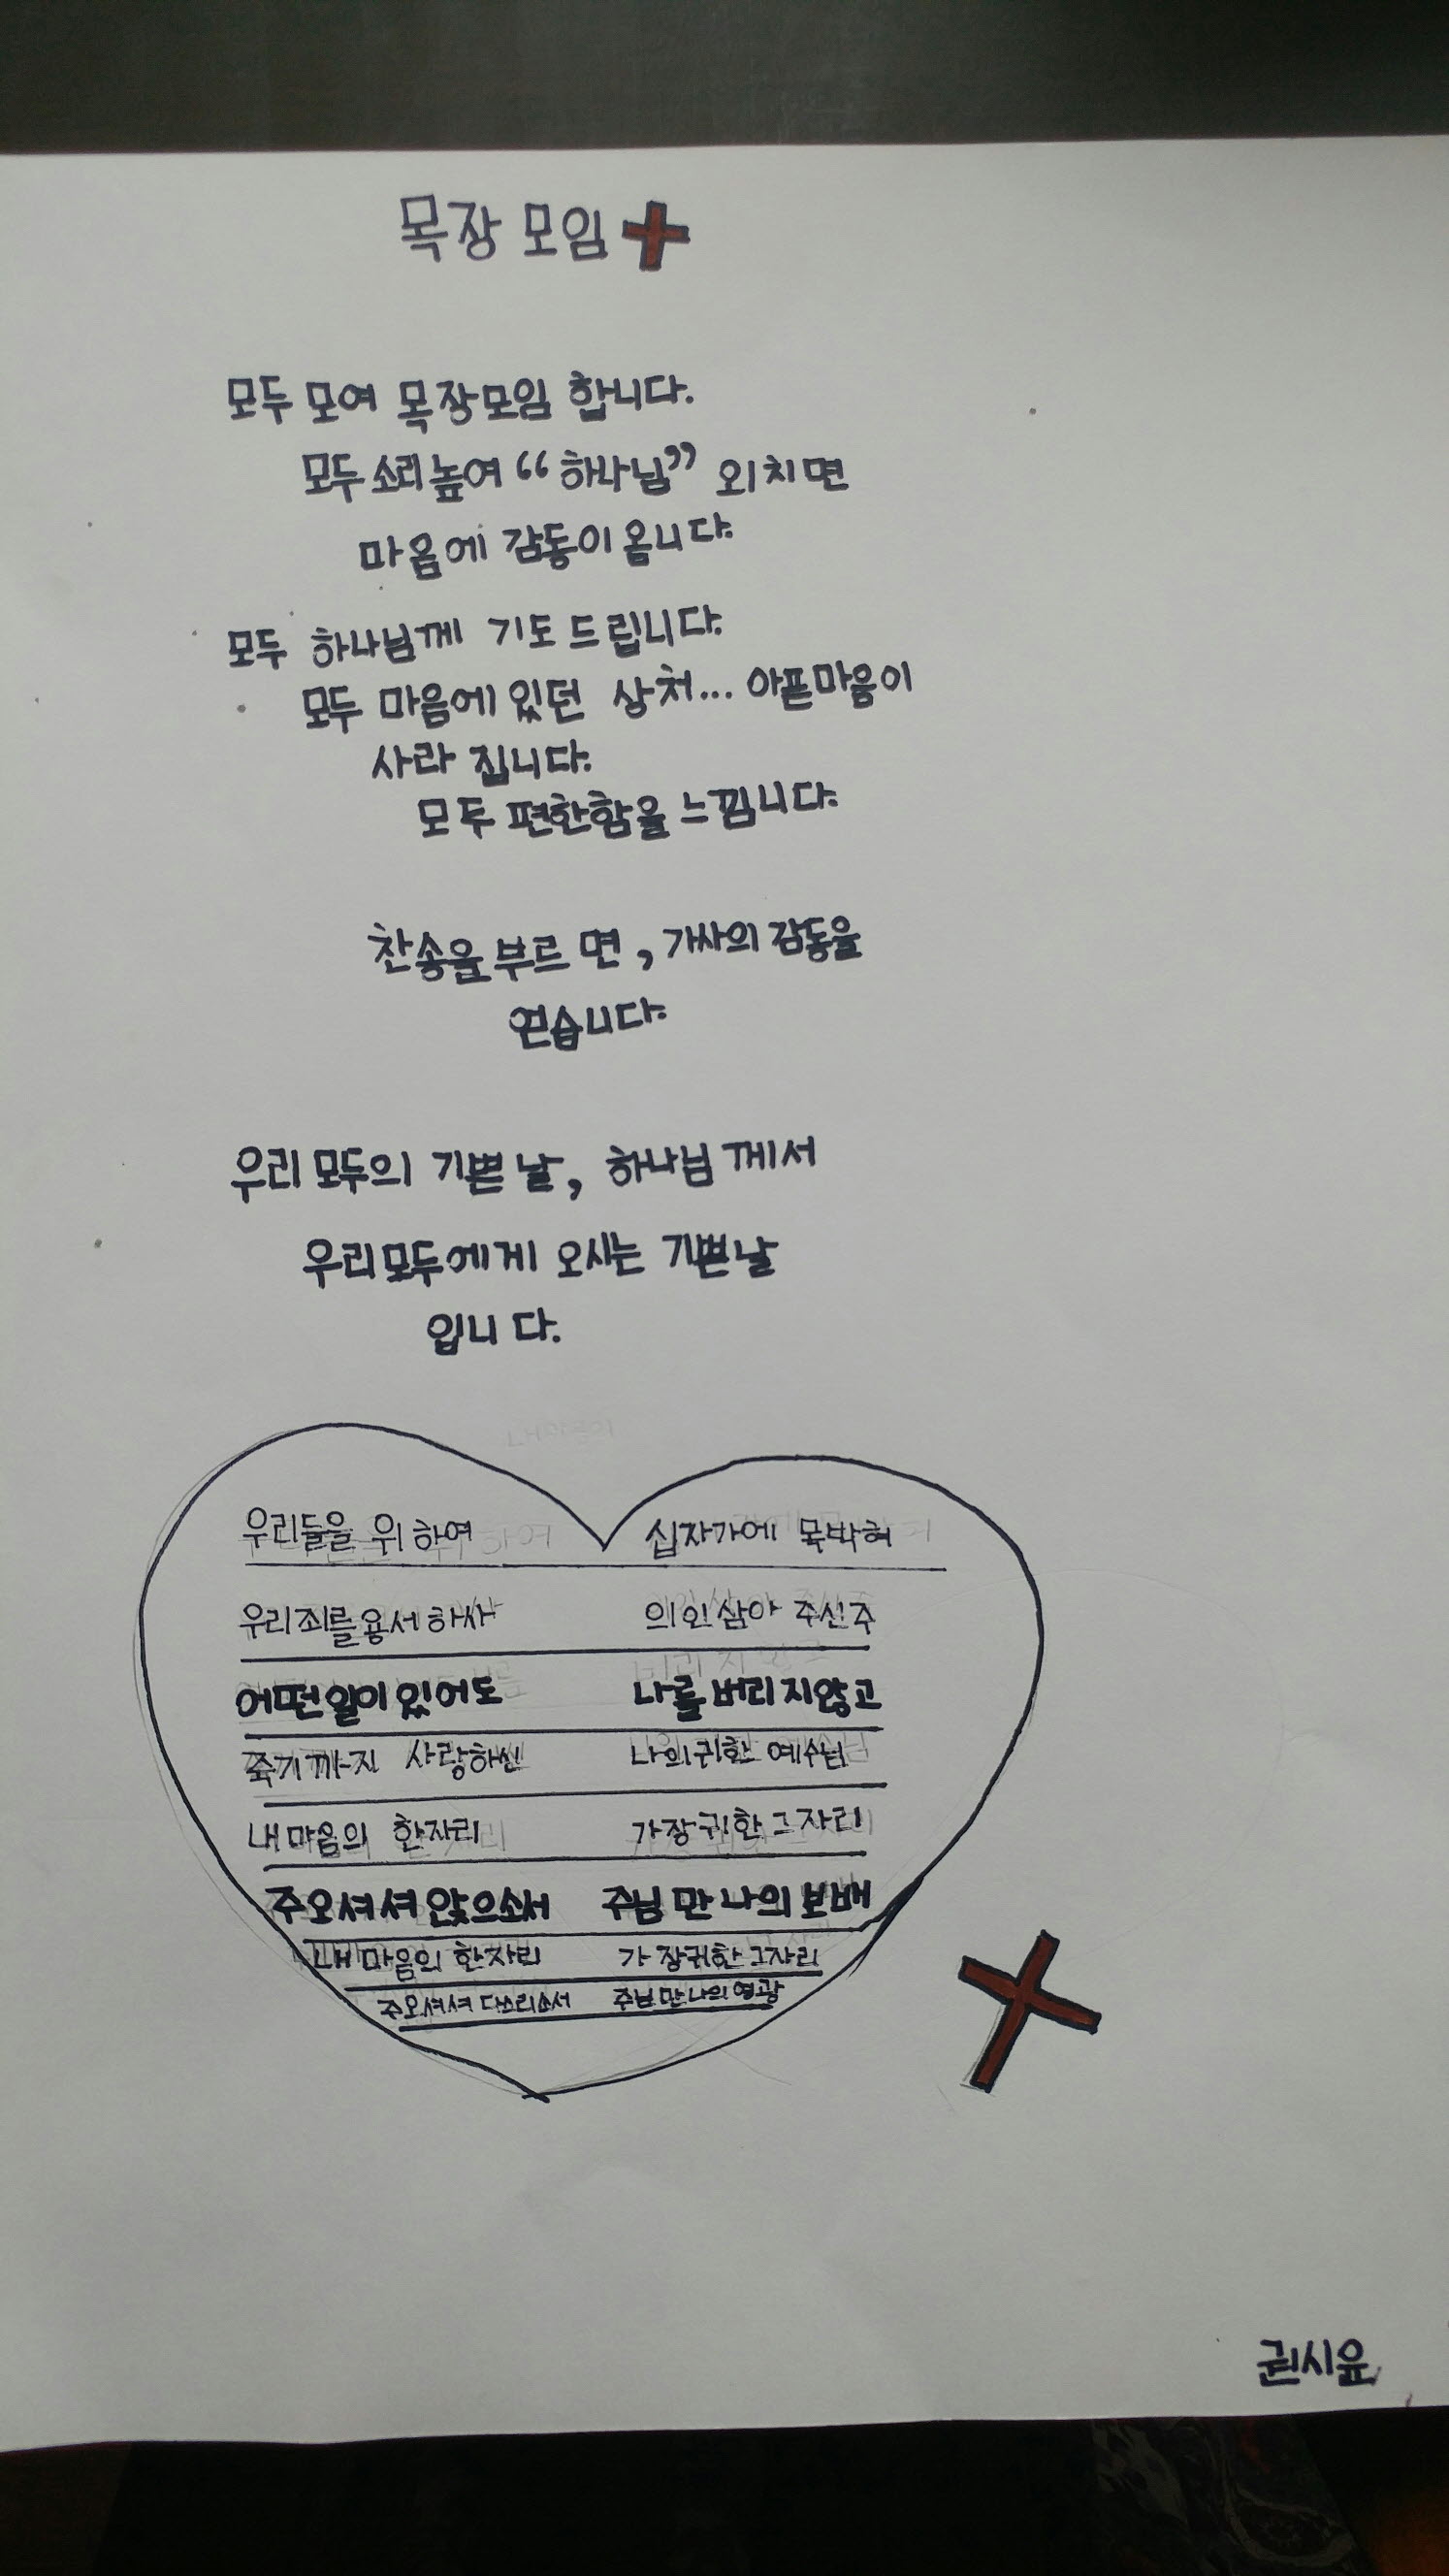 목장 모임
모두 모여 목장모임 합니다.
모두 소리높여 “하나님” 외치면
마음에 감동이 옵니다.
모두 하나님께 기도 드립니다.
모두 마음에 있던 상처... 아픈마음이
사라 집니다.
모두 편한함을 느낍니다.
찬송을 부르면, 가사의 감동을
얻습니다.
우리 모두의 기쁜 날, 하나님 께서
우리모두에게 오시는 기쁜날
입니다.
우리들을 위하여 십자가에 목박혀
우리죄를용서하사 의인삼아 주신주
어떤일이있어도 나를 버리지않고
죽기까지 사랑하신 나의귀한 예수님
내마음의 한자리 가장귀한 그자리
주오셔셔 앉으소서 주님만 나의 보배
내마음의 한자리 가장귀한 그자리
주오셔셔 다쓰리소서 주님만나의영광
권시윤